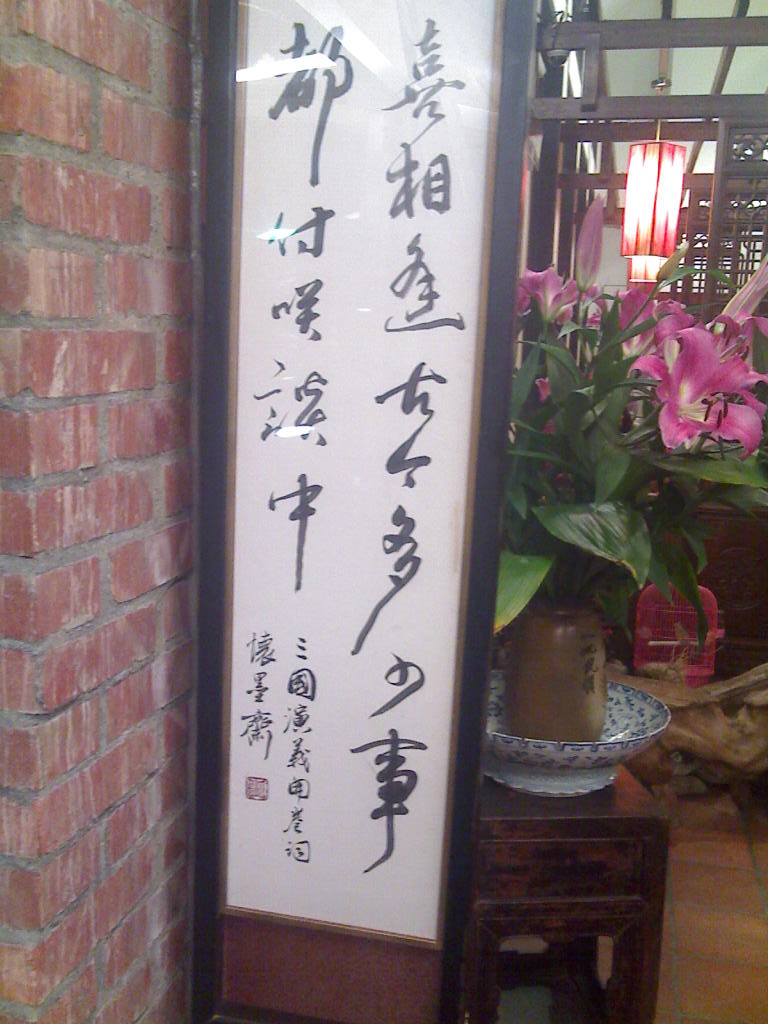 喜相逢古今多少事
都付咲談中
三國演義開卷詞
懷墨齋